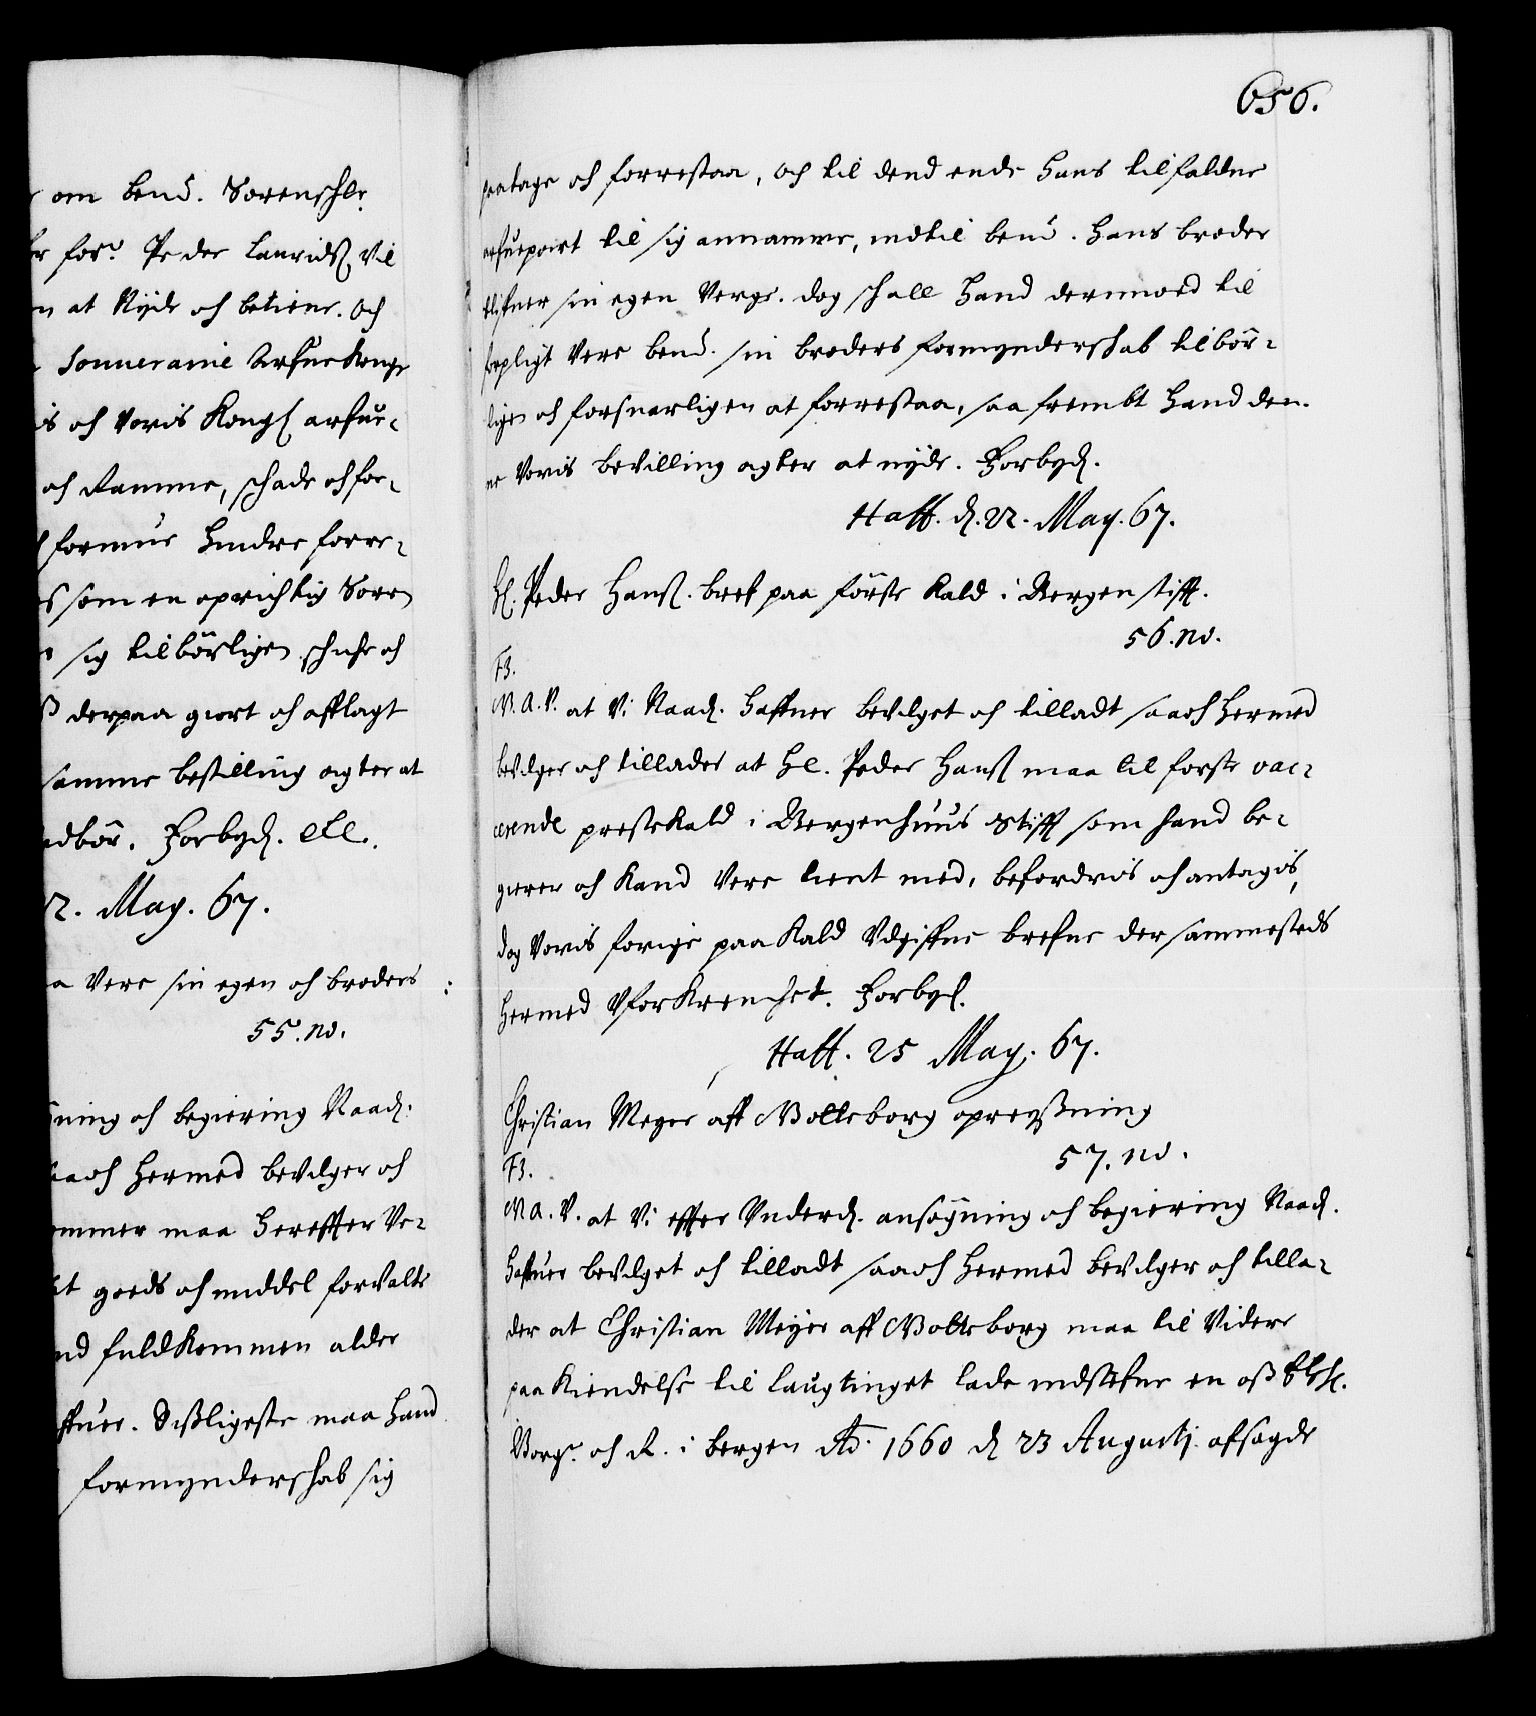 om bend. Sorenschr.
for. Peder Lauridß, Vil
at Nyde och betiene. och
Souueraine Arfue Konge
is och Voris Kongl arfue-
och Ramme, schade och for-
formue hindre forre-
som en oprichtig Soren
sig tilbörligen schiche och
derpaa giort och afflagt
samme bestilling agter at
Forbyd. etc.
22. May. 67.
a Vere sin egen och broders
55. no.
ning och begiering Naad.
saa och hermed bevilger och
maa hereffter Ve-
goeds och middel forvalte
fuldkommen alder
Dißligeste maa hand
formynderschab sig
656.
paatage och forrestaa, och til dend ende hans tilfaldne
arfuepart til sig annamme, indtil bend. hans broder
blifuer sin egen Verge. dog schall hand dermed til
forpligt Vere bend. sin broders formynderschab tilbör-
ligen och forsuarligen at forrestaa, saa frembt hand den-
ne Voris bevilling agter at nyde. Forbyd.
Haff. d. 22. May. 67.
Hl. Peder Hanß. bref paa förste Kald i Bergen stifft.
56. no.
F3.
W. A. V. at Vi Naad. haffuer bevilget och tilladt saa och hermed
bevilger och tillader at Hl. Peder Hanß maa til forste vac-
cerende preste Kald i Bergenhuus Stifft som hand be-
gierer och Kand Vere tient med, befordris och antagis,
dog Voris forige paa Kald Udgiffne brefue der sammesteds
hermed Uforkrenchet. Forbyd.
Haff. 25 May. 67.
Christian Meyer aff Wolteborg opreyßning
57. no.
F3.
W. A. V. at Vi effter Underd. ansögning och begiering Naad.
haffuer bevilget och tilladt saa och hermed bevilger och tilla-
der at Christian Meyer aff Wolteborg maa til Videre
paa Kiendelse til laugtinget lade indstefne en aff
Borg. och R. i bergen Ao. 1660 d 23 Augusti afsagde